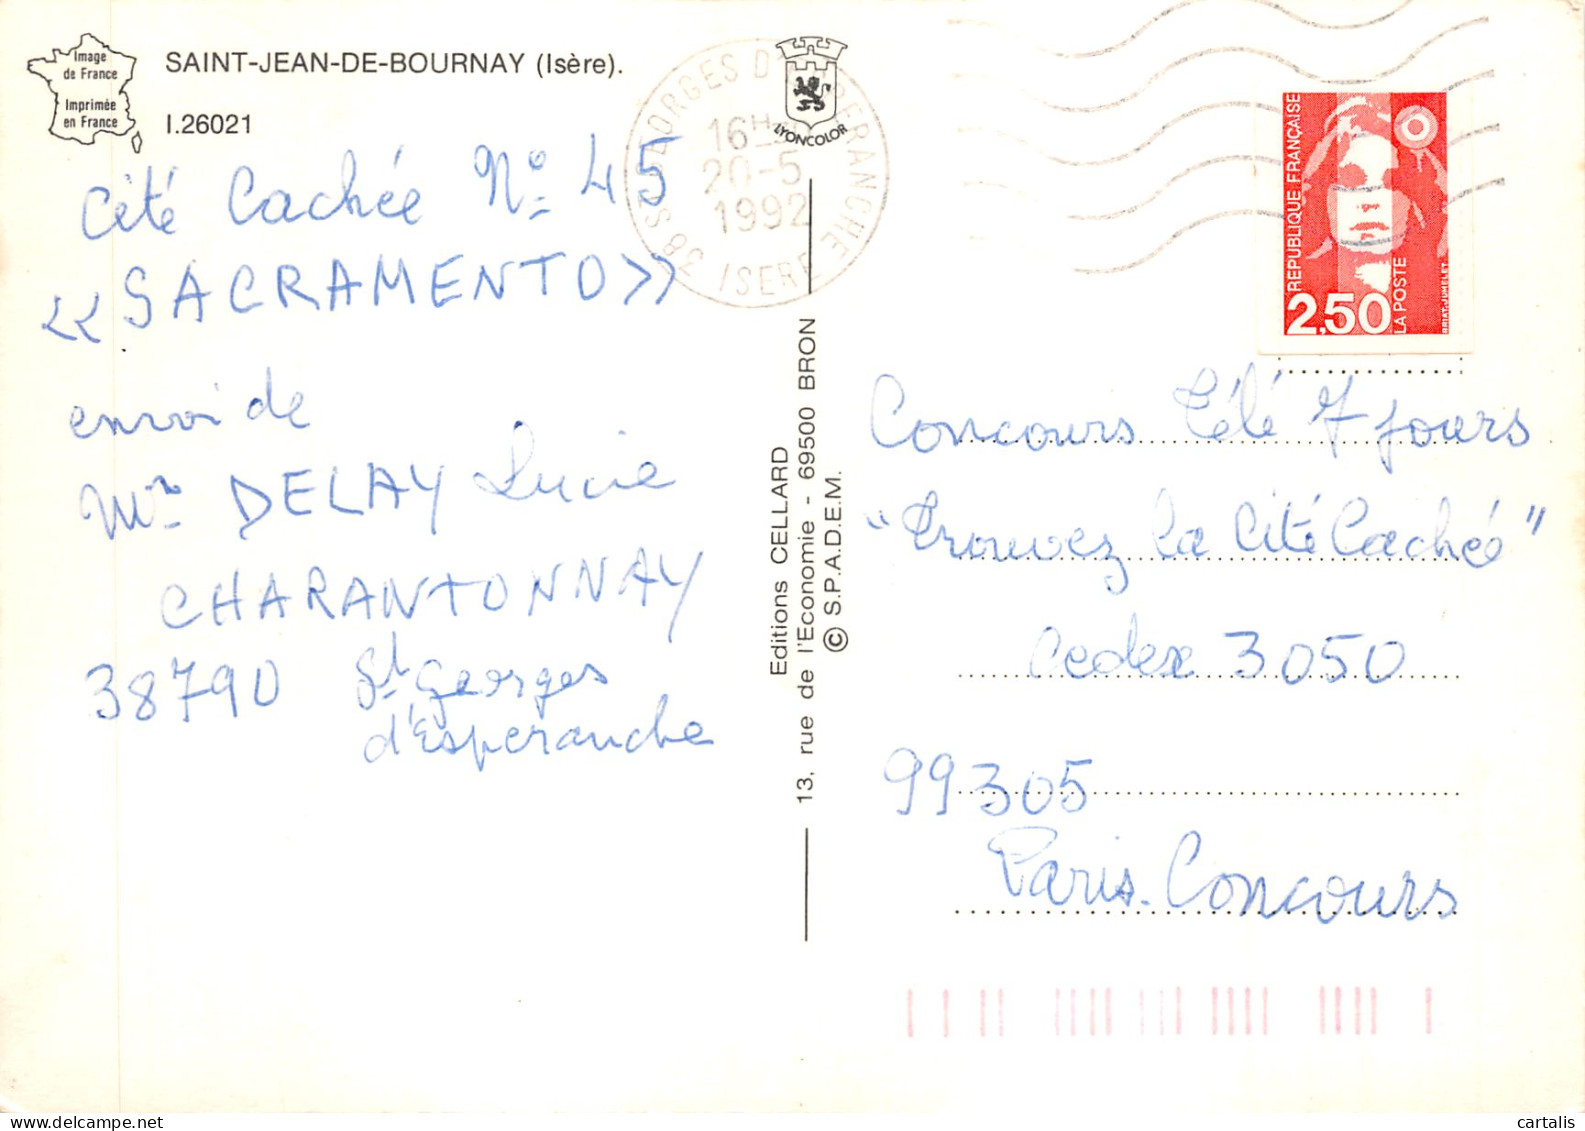 Image
de France
Imprimée
en France
SAINT-JEAN-DE-BOURNAY (Isère).
I.26021
Cité Cachée N° 45
<<SACRAMENTO>>
envoi de
Mme DELAY Lucie
CHARANTONNAY
38790 St Georges
d'Esperanche
16H
20-5
1992
38 ST GEORGES D'ESPERANCHE
ISERE
LYONCOLOR
Editions CELLARD
13, rue de l'Economie - 69500 BRON
© S.P.A.D.E.M.
REPUBLIQUE FRANÇAISE
2,50
LA POSTE
BRIAT.JUMELET
Concours Télé 7 jours
"Trouvez la Cité Cachée"
Cedex 3050
99305
Paris-Concours
cartalis